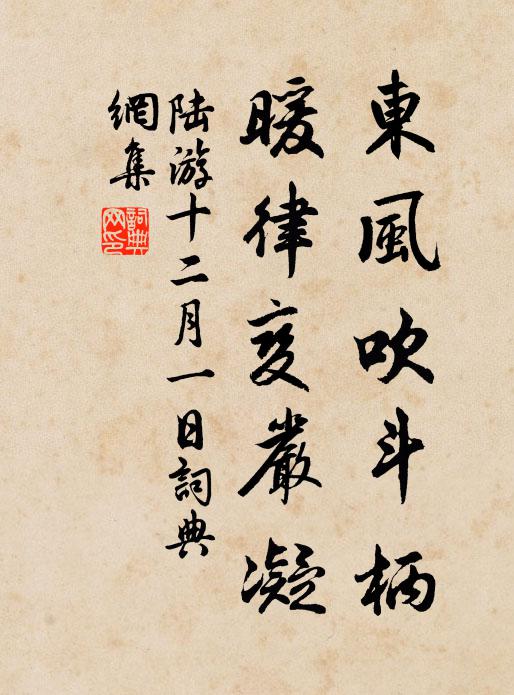 東風吹斗柄
暖律变嚴凝
陆游十二月一日詞典
網集
詞典网印